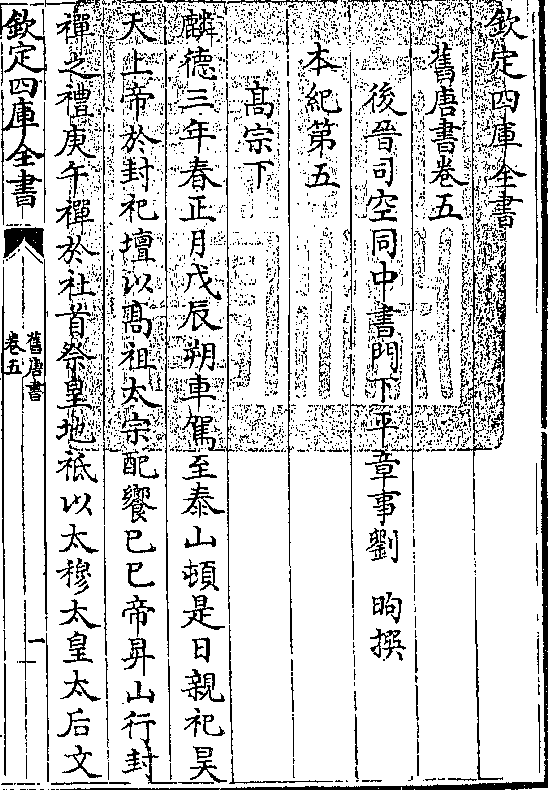 欽定四庫全書
舊唐書卷五
後晉司空同中書門下平章事劉昫撰
本紀第五
高宗下
麟德三年春正月戊辰朔車駕至泰山頓是日親祀昊
天上帝於封祀壇以髙祖太宗配饗已巳帝昇山行封
禪之禮庚午禪於社首祭皇地祇以太穆太皇太后文
欽定四庫全書
舊唐書
卷五
一